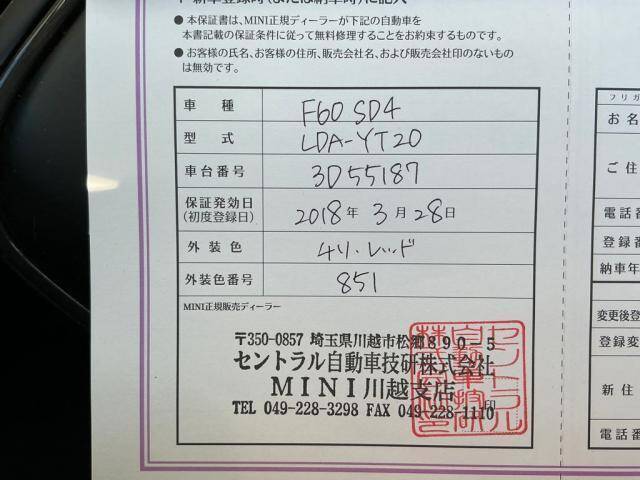 ● 本保証書は、MINI正規ディーラーが下記の自動車を
本書記載の保証条件に従って無料修理することをお約束するものです。
● お客様の氏名、お客様の住所、販売会社名、および販売会社印のないもの
は無効です。
車 種 F60 SD4
型 式 LDA-YT20
車台番号 3D55187
保証発効日
(初度登録日) 2018年 3月 28日
外装色 チリ・レッド
外装色番号 851
MINI正規販売ディーラー
〒350-0857 埼玉県川越市松郷890-5
セントラル自動車技研株式会社
MINI川越支店
TEL 049-228-3298 FAX 049-228-1110
フリガ
お名
ご住
電話番
登録番
納車年
変更後登
登録変
新住
電話番